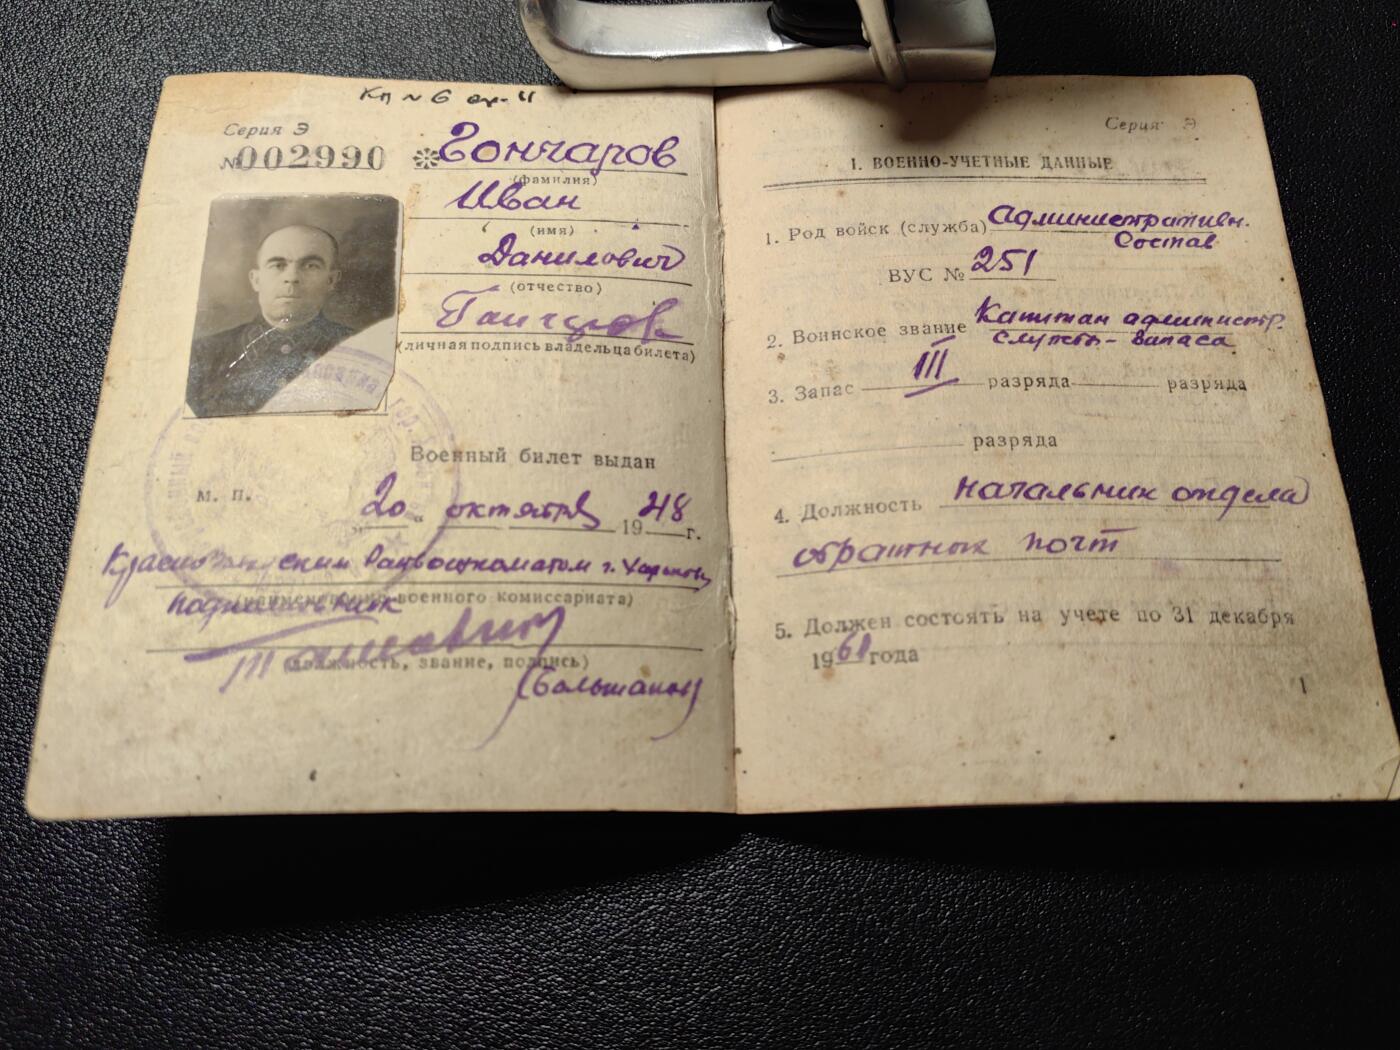 Кп № 6
Серия Э
№002990
Гончаров
(фамилия)
Иван
(имя)
Данилович
(отчество)
(личная подпись владельца билета)
Военный билет выдан
М. П.
20 „ октября 1948 г.
г. Харькова
(наименование военного комиссариата)
(должность, звание, подпись)
Серия Э
1. ВОЕННО-УЧЕТНЫЕ ДАННЫЕ
1. Род войск (служба) Административн.
Состав
ВУС № 251
2. Воинское звание Капитан администр.
службы - запаса
3. Запас III разряда разряда
разряда
4. Должность начальник отдела
почт
5. Должен состоять на учете по 31 декабря
1961 года
1